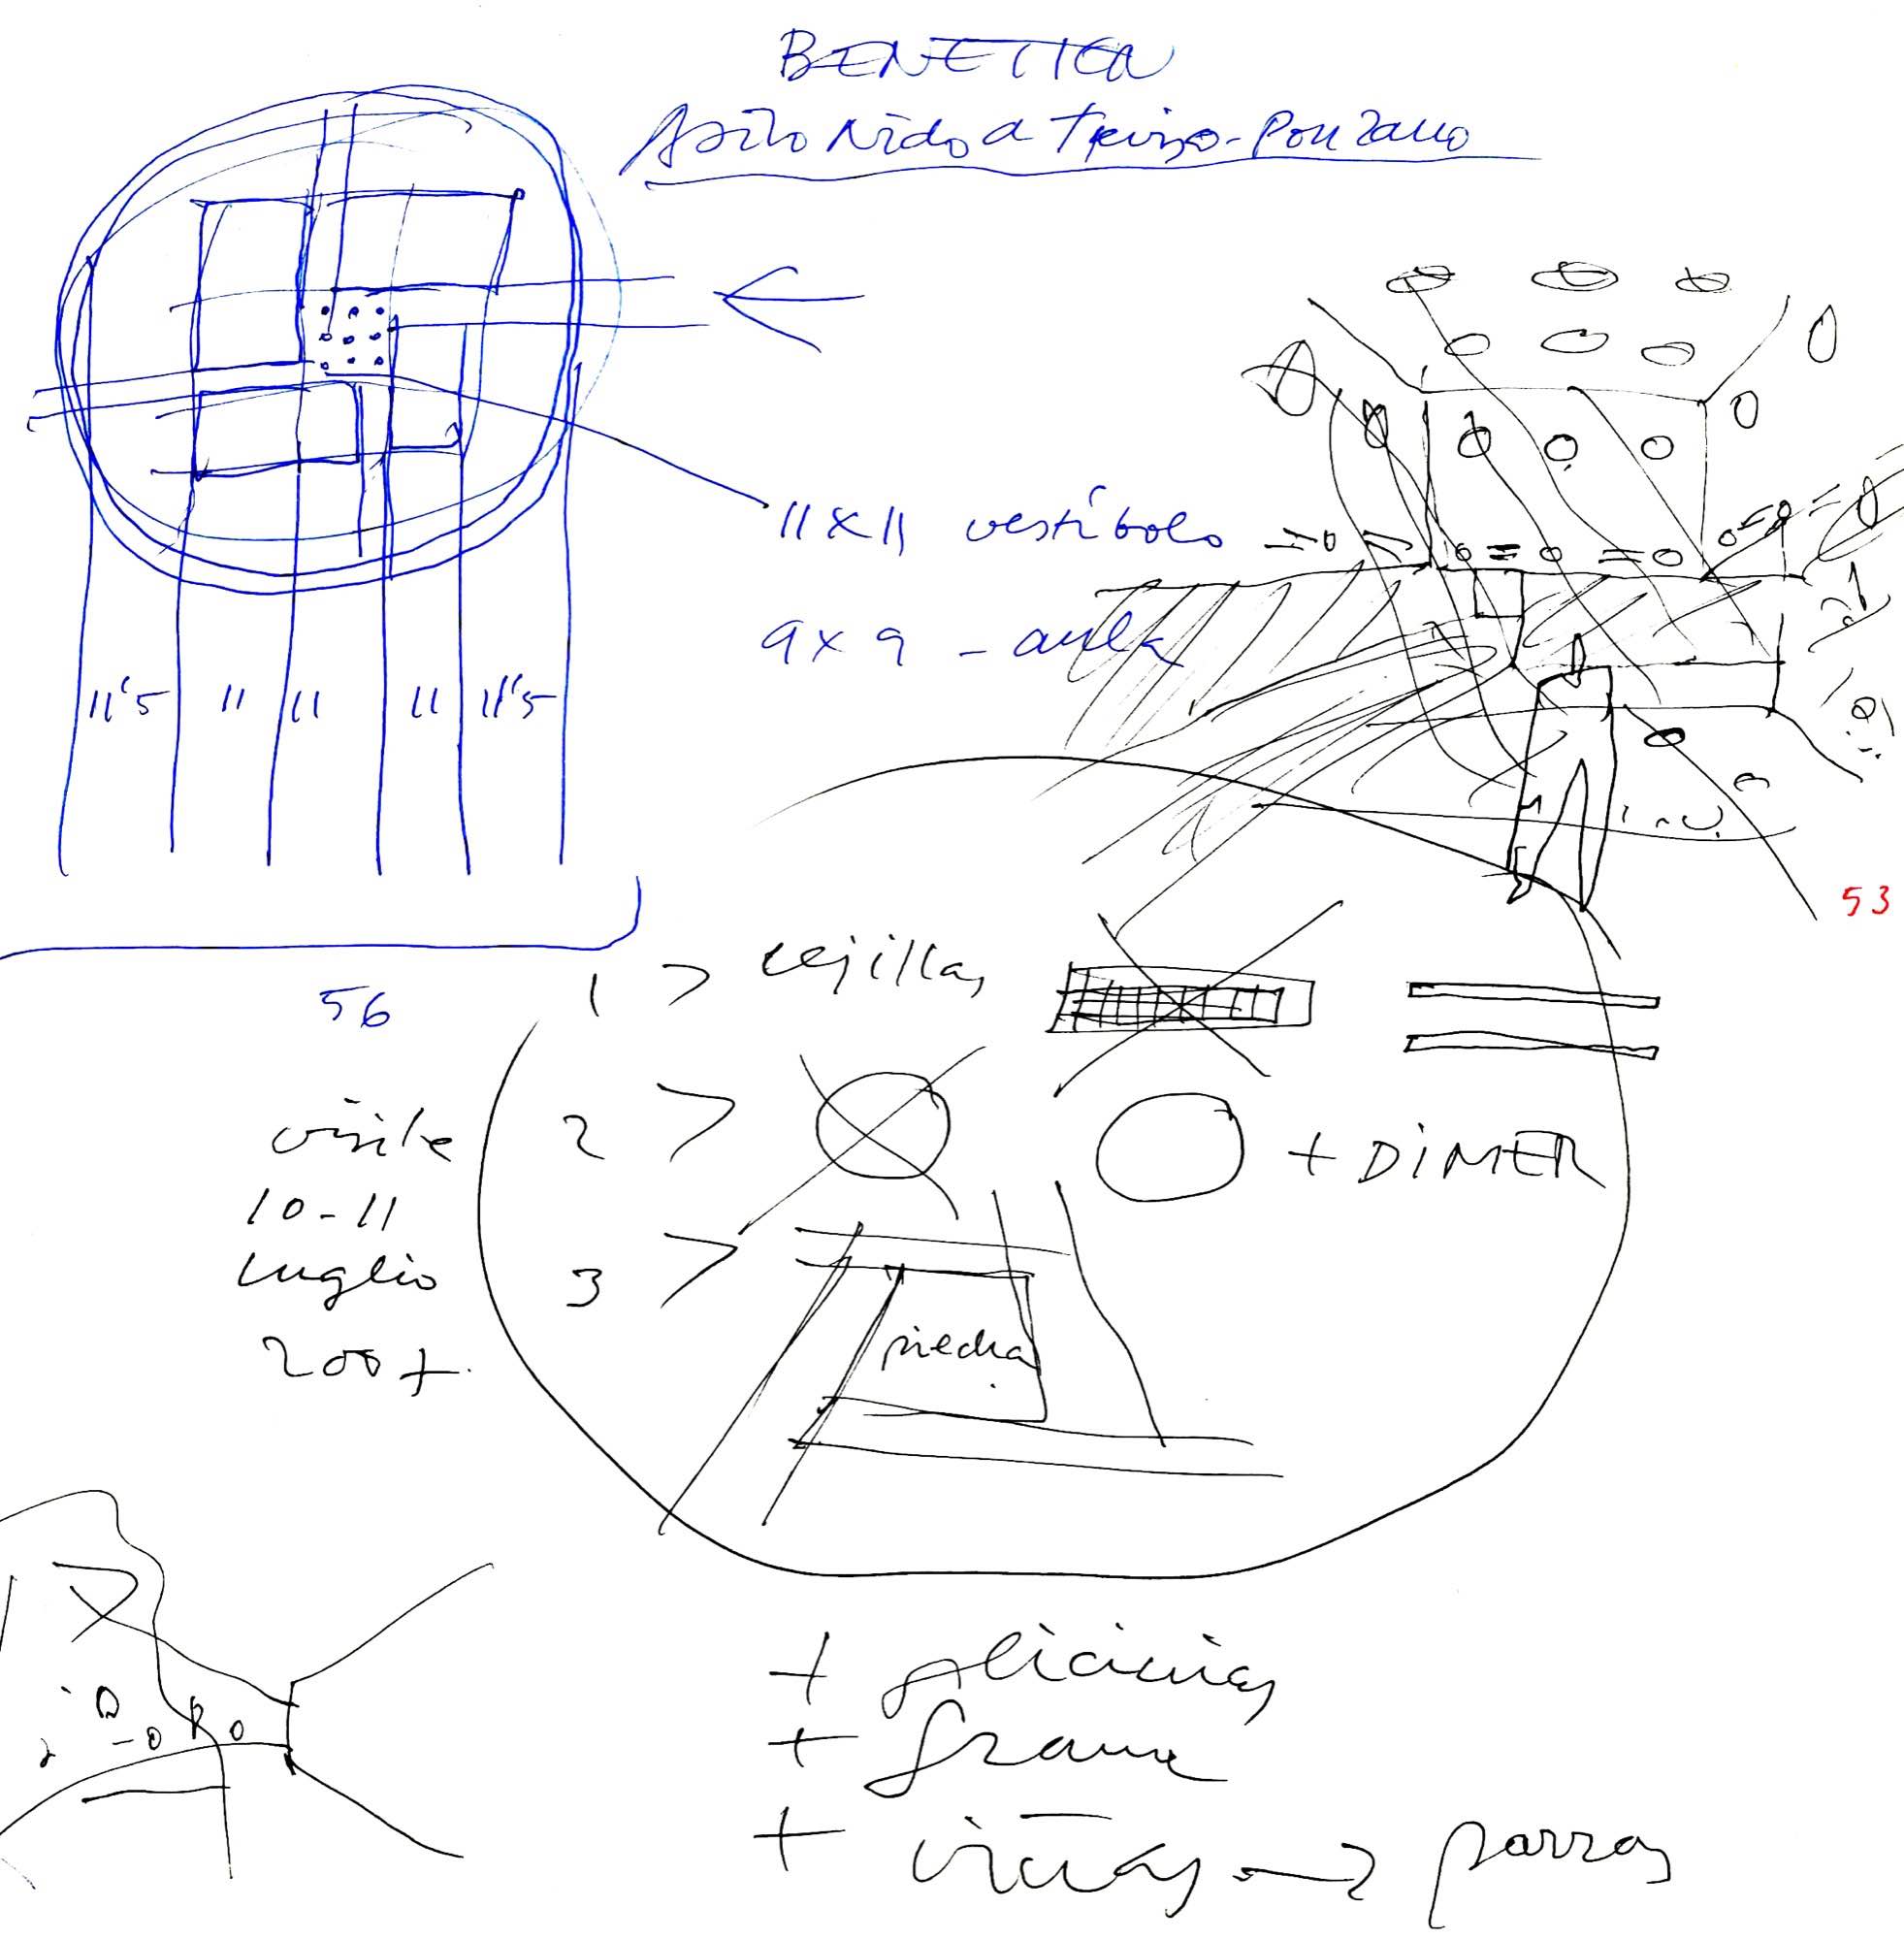 BENETTON
Asilo Nido a Treviso-Ponzano
11x11 vestibolo
9x9 - aula
11'5 11 11 11 11'5
53
56
1 > rejillas
visita
2 > + DIMER
10-11
luglio
3 >
piedra
2007.
+ glicinias
+ grama
+ viñas → parras